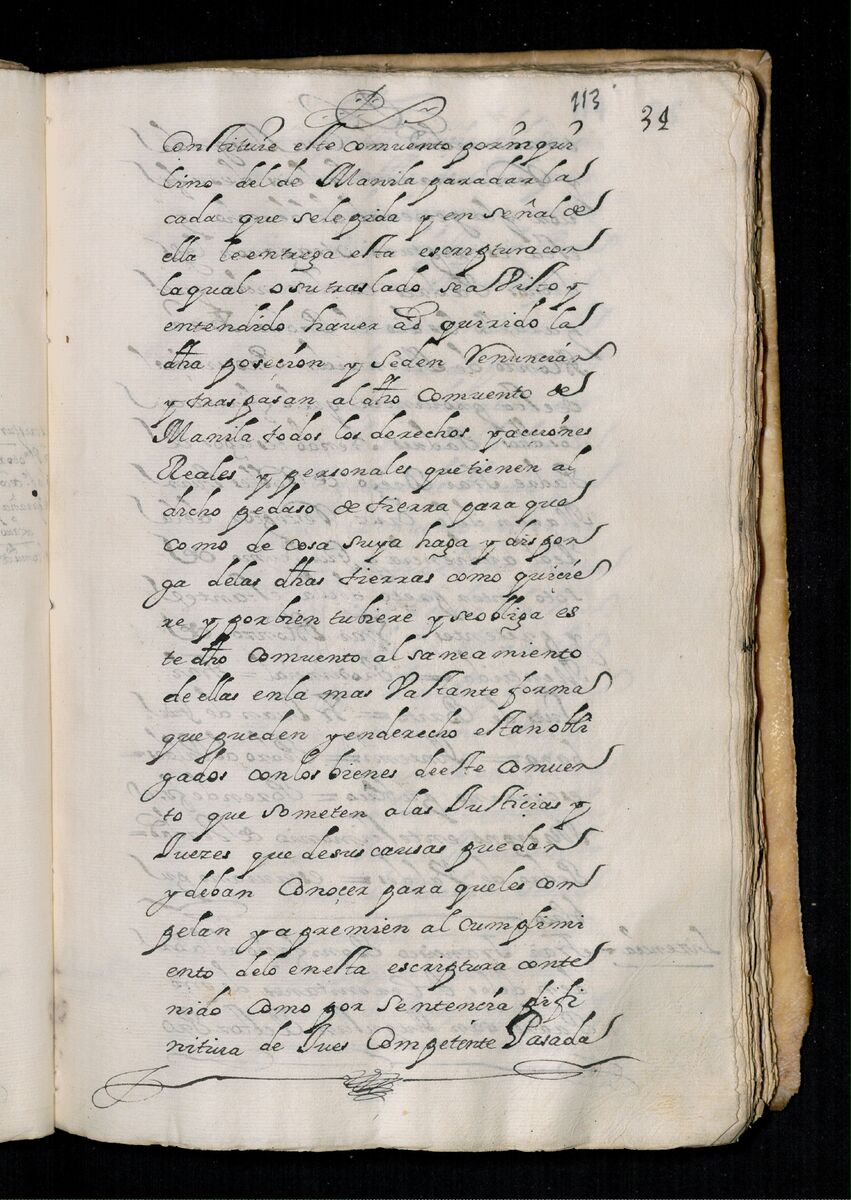 113
34
Constituie este comuento por ynqui
lino del de Manila para dar la
cada que se le pida y en señal de
ella le entrega esta escriptura con
la qual o su traslado sea visto y
entendido haver adqurrido la
dha poseción y seden Renuncian
y traspasan al dho Comuento de
Manila todos los derechos y acciónes
Reales y personales que tienen al
dicho pedaso de tierra para que
como de cosa suya haga y dispon
ga de las dhas tierras como quicie
re y por bien tubiere y se obliga es
te dho Comuento al saneamiento
de ellas en la mas Vastante forma
que pueden y en derecho estan obli
gados con los bienes de este Comuen
to que someten a las Justicias y
Juezes que de sus causas puedan
y deban Conoçer para que les com
pelan y apremien al cumplimi
ento de lo en esta escriptura conte
nido como por Sentencía difi
nitiva de Jues Competente Pasada